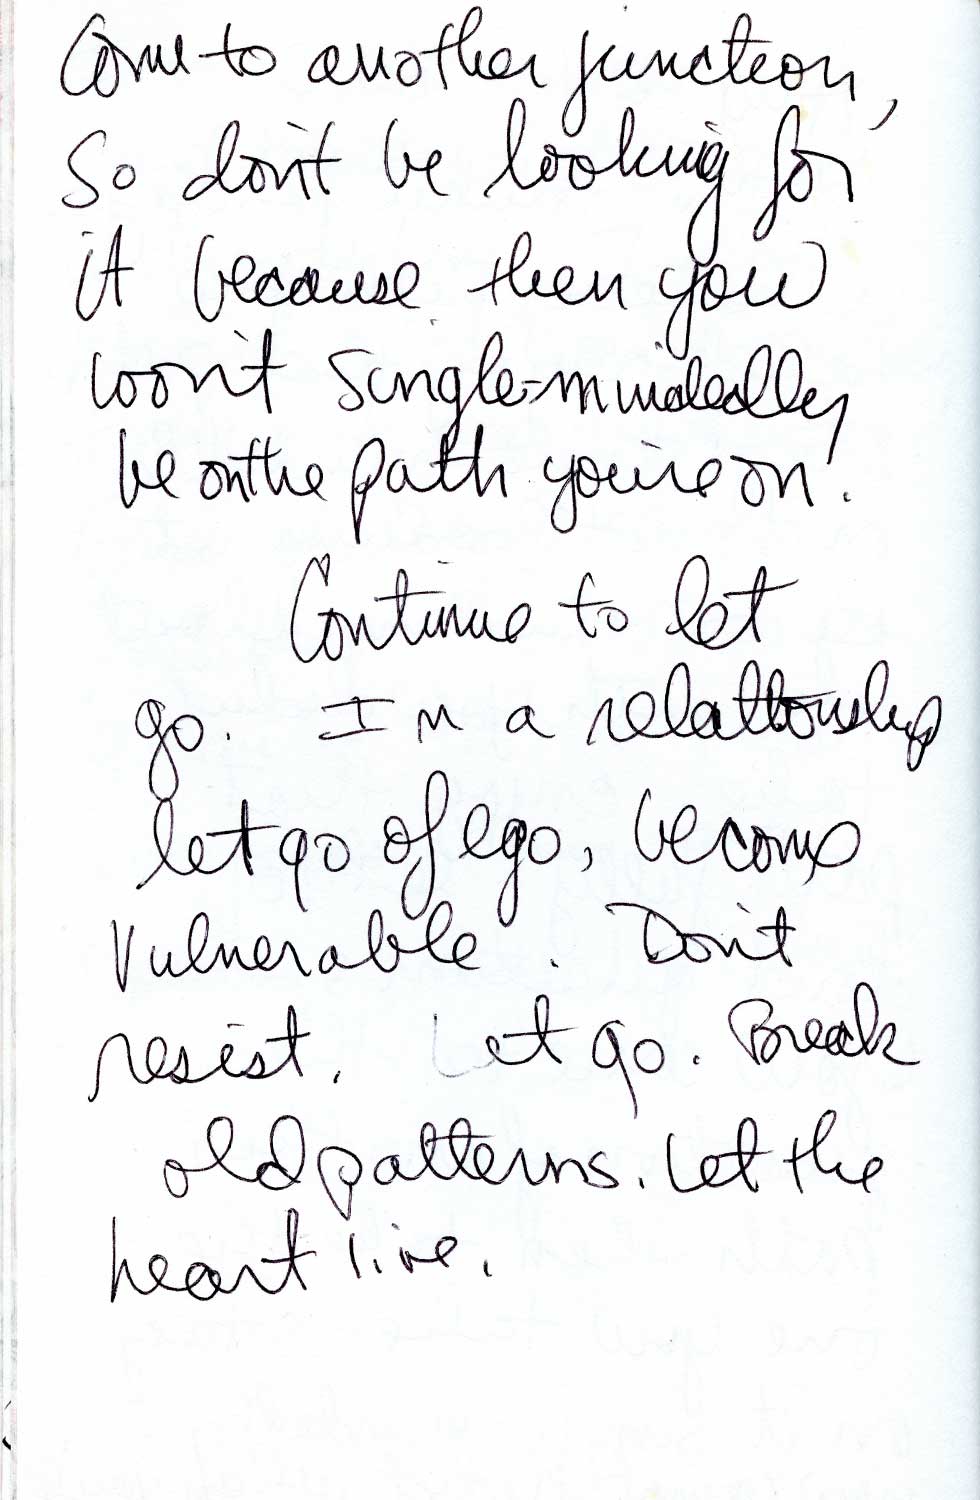 Come to another junction,
So don't be looking for
it because then you
won't single-mindedly
be on the path you're on.
Continue to let
go. In a relationship
let go of ego, become
vulnerable. Don't
resist. Let go. Break
old patterns. Let the
heart live.